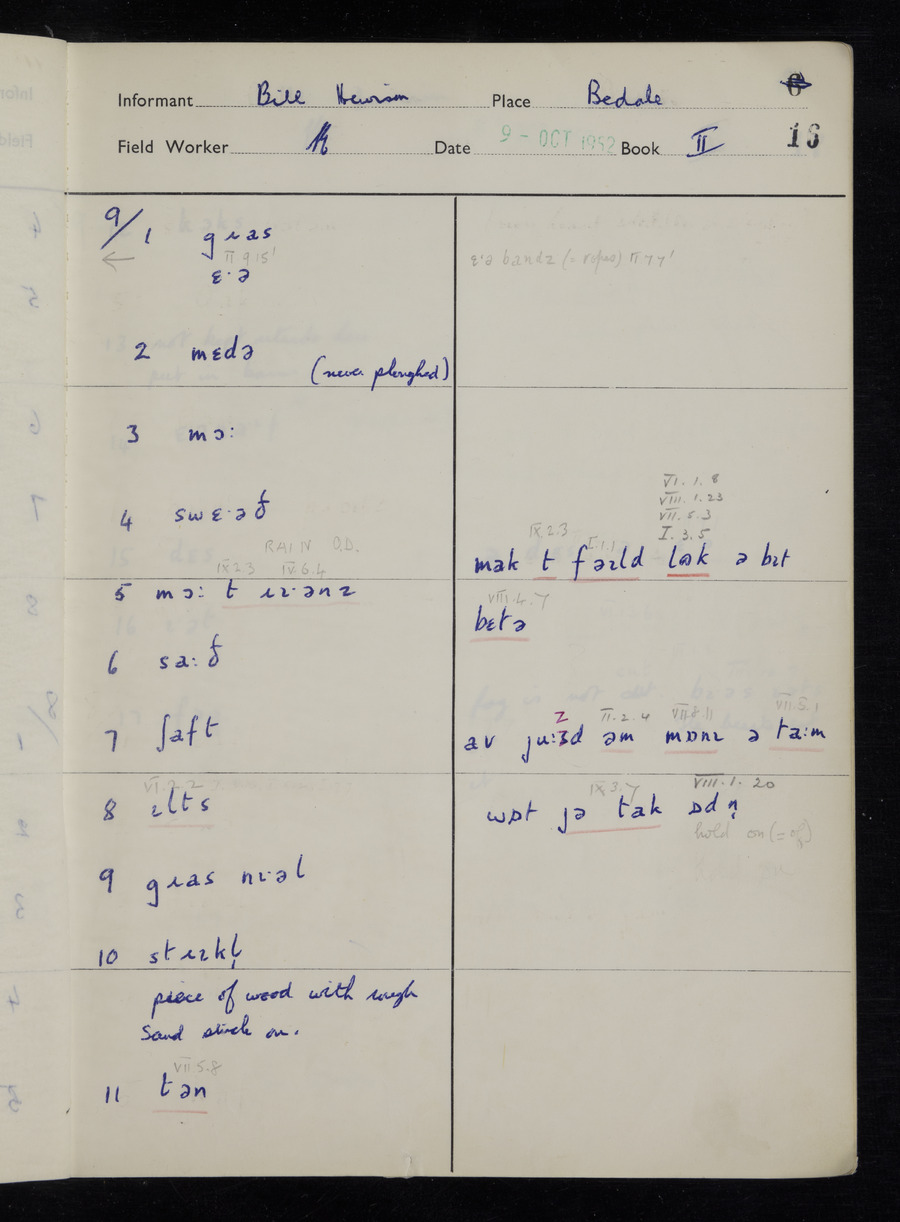 Informant Bill Hewison Place Bedale 6
Field Worker Date 9 - OCT 1952 Book II 16
9/1 gɹas
← II 9 15'
ɛ·ə
2 mɛdə
(never ploughed)
3 mɔː
4 swɛ·əð
RAIN O.D.
IX 2 3 IV. 6. 4
5 mɔː t ɹɪ·ənz
6 saːð
7 ʃaft
VI. 2. 2
8 ɪlts
9 gɹas nɪ·əl
10 stɹɪkl̩
piece of wood with rough
Sand stuck on.
VII 5. 8
11 tən
ɛ·ə bandz (= ropes) II 7 7'
VI. 1. 8
VIII. 1. 23
VII. 5. 3
IX. 2. 3 I. 1. 1 I. 3. 5
mək t fəɪld lɒk ə bɪt
VIII. 4. 7
bɛtə
z II. 2. 4 VII. 8. 11 VII. 5. 1
av juːʒd əm mɒnɪ ə taːm
IX. 3. 7 VIII. 1. 20
wɒt jə tak ɒdn̩
hold on (= of)